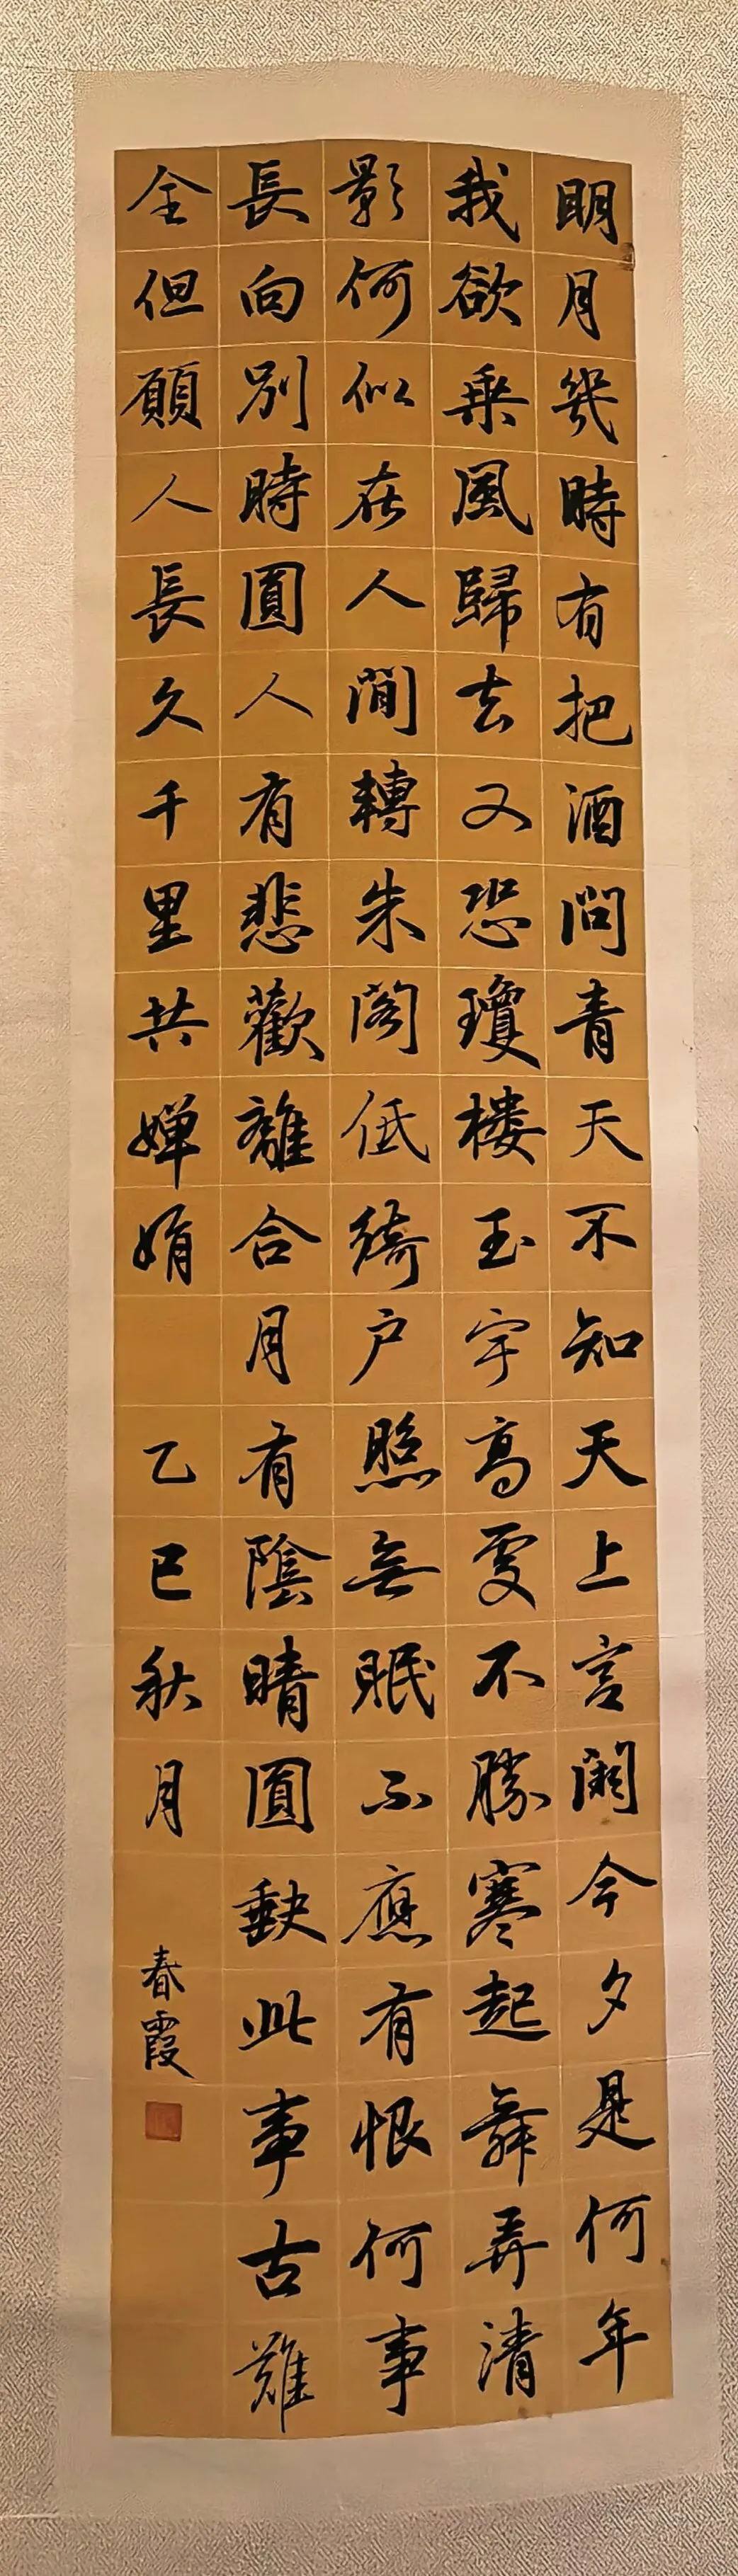 明月幾時有把酒問青天不知天上宮闕今夕是何年
我欲乘風歸去又恐瓊樓玉宇高處不勝寒起舞弄清
影何似在人間轉朱閣低綺户照無眠不應有恨何事
長向別時圓人有悲歡離合月有陰晴圓缺此事古難
全但願人長久千里共嬋娟 乙巳秋月 春霞